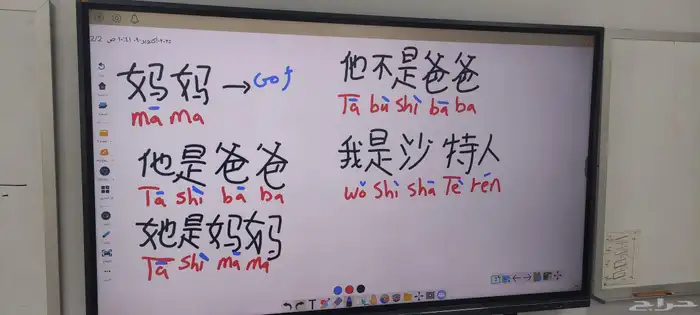 妈妈 → Got
mā ma
他是爸爸
Tā shì bā ba
她是妈妈
Tā shì mā ma
他不是爸爸
Tā bù shì bā ba
我是沙特人
wǒ shì shā Tè rén
2/2
حراج